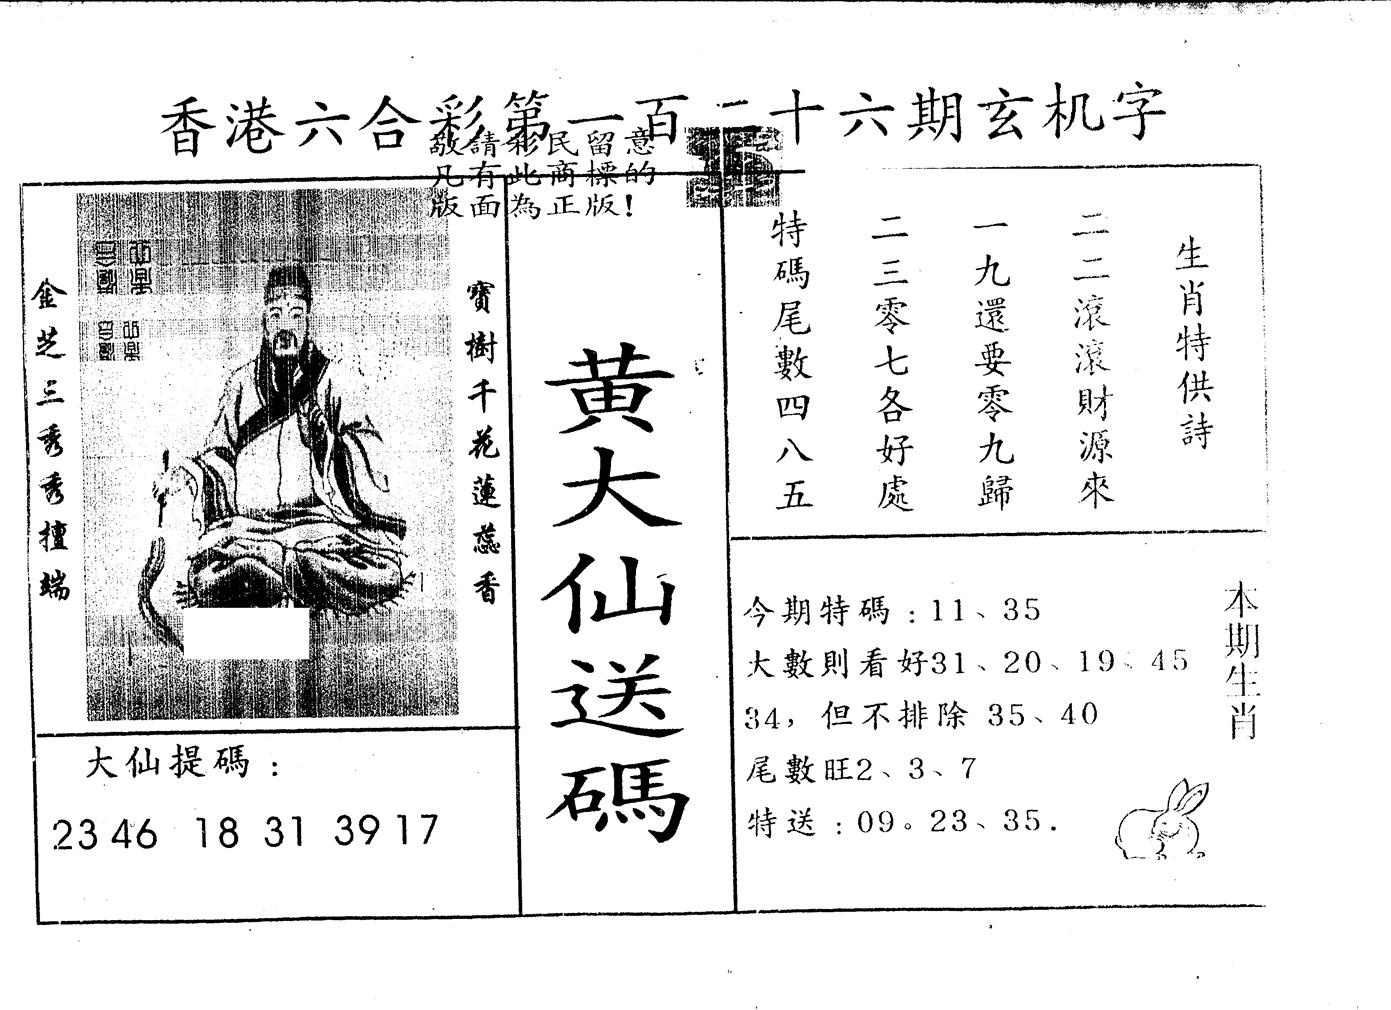 香港六合彩第一百二十六期玄机字
敬請彩民留意
凡有此商標的
版面為正版!
金芝三秀秀擅端
寶樹千花蓮蕊香
黄大仙送碼
生肖特供詩
二二滚滚財源來
一九還要零九歸
二三零七各好處
特碼尾數四八五
大仙提碼：
23 46 18 31 39 17
今期特碼：11、35
大數則看好31、20、19、45
34，但不排除 35、40
尾數旺2、3、7
特送：09。23、35.
本期生肖